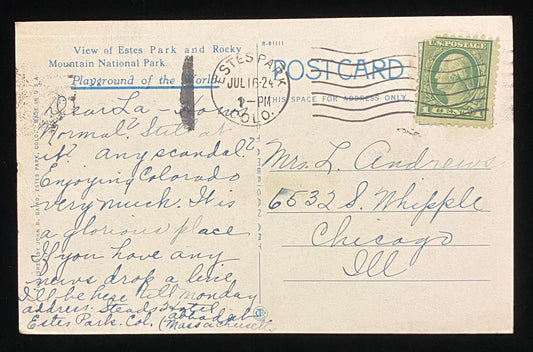 View of Estes Park and Rocky
Mountain National Park.
Playground of the World
R-81111
POSTCARD
THIS SPACE FOR ADDRESS ONLY
ESTES PARK
JUL 16-24
1-PM
COLO.
U.S. POSTAGE
1 CENT 1
Dear La - How's
Normal? Still at
it? Any scandal?
Enjoying Colorado
very much. It is
a glorious place
If you have any
news drop a line
I'll be here till Monday
address. Steads Hotel
Estes Park. Col. (Massachusetts
Mrs. L. Andrews
6532 S. Whipple
Chicago
Ill